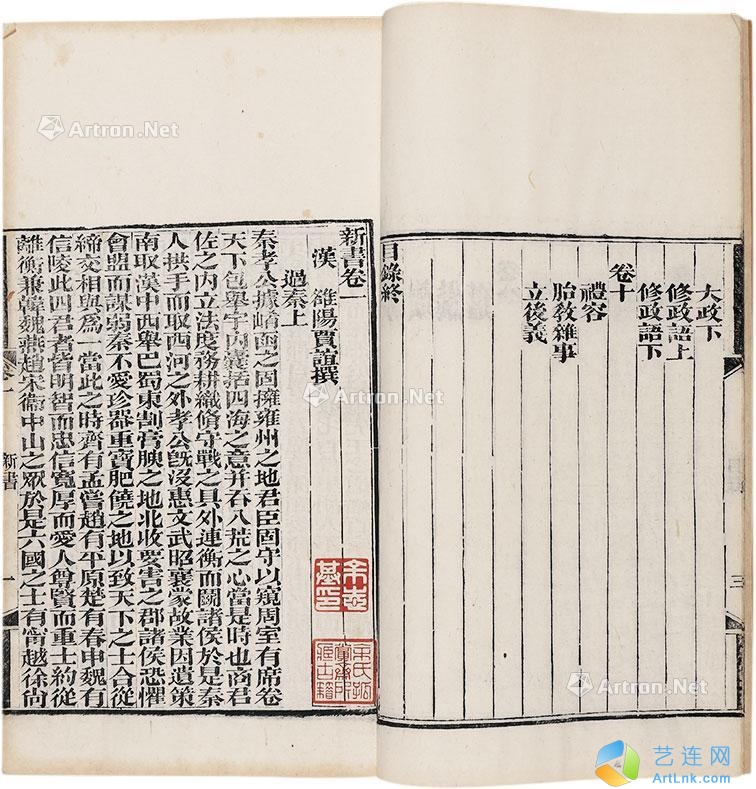 大政下
修政語上
修政語下
卷十
禮容
胎教雜事
立後義
目錄終
三
新書卷一
漢 雒陽賈誼撰
過秦上
秦孝公據崤函之固擁雍州之地君臣固守以窺周室有席卷
天下包舉宇內囊括四海之意并吞八荒之心當是時也商君
佐之內立法度務耕織脩守戰之具外連衡而鬭諸侯於是秦
人拱手而取西河之外孝公旣沒惠文武昭襄蒙故業因遺策
南取漢中西舉巴蜀東割膏腴之地北收要害之郡諸侯恐懼
會盟而謀弱秦不愛珍器重寶肥饒之地以致天下之士合從
締交相與爲一當此之時齊有孟嘗趙有平原楚有春申魏有
信陵此四君者皆明智而忠信寬厚而愛人尊賢而重士約從
離衡兼韓魏燕趙宋衞中山之眾於是六國之士有甯越徐尚
卷一 新書 一
Artron.Net
Artron.Net
Artron.Net
Artron.Net
Artron.Net
艺连网
ArtLnk.com